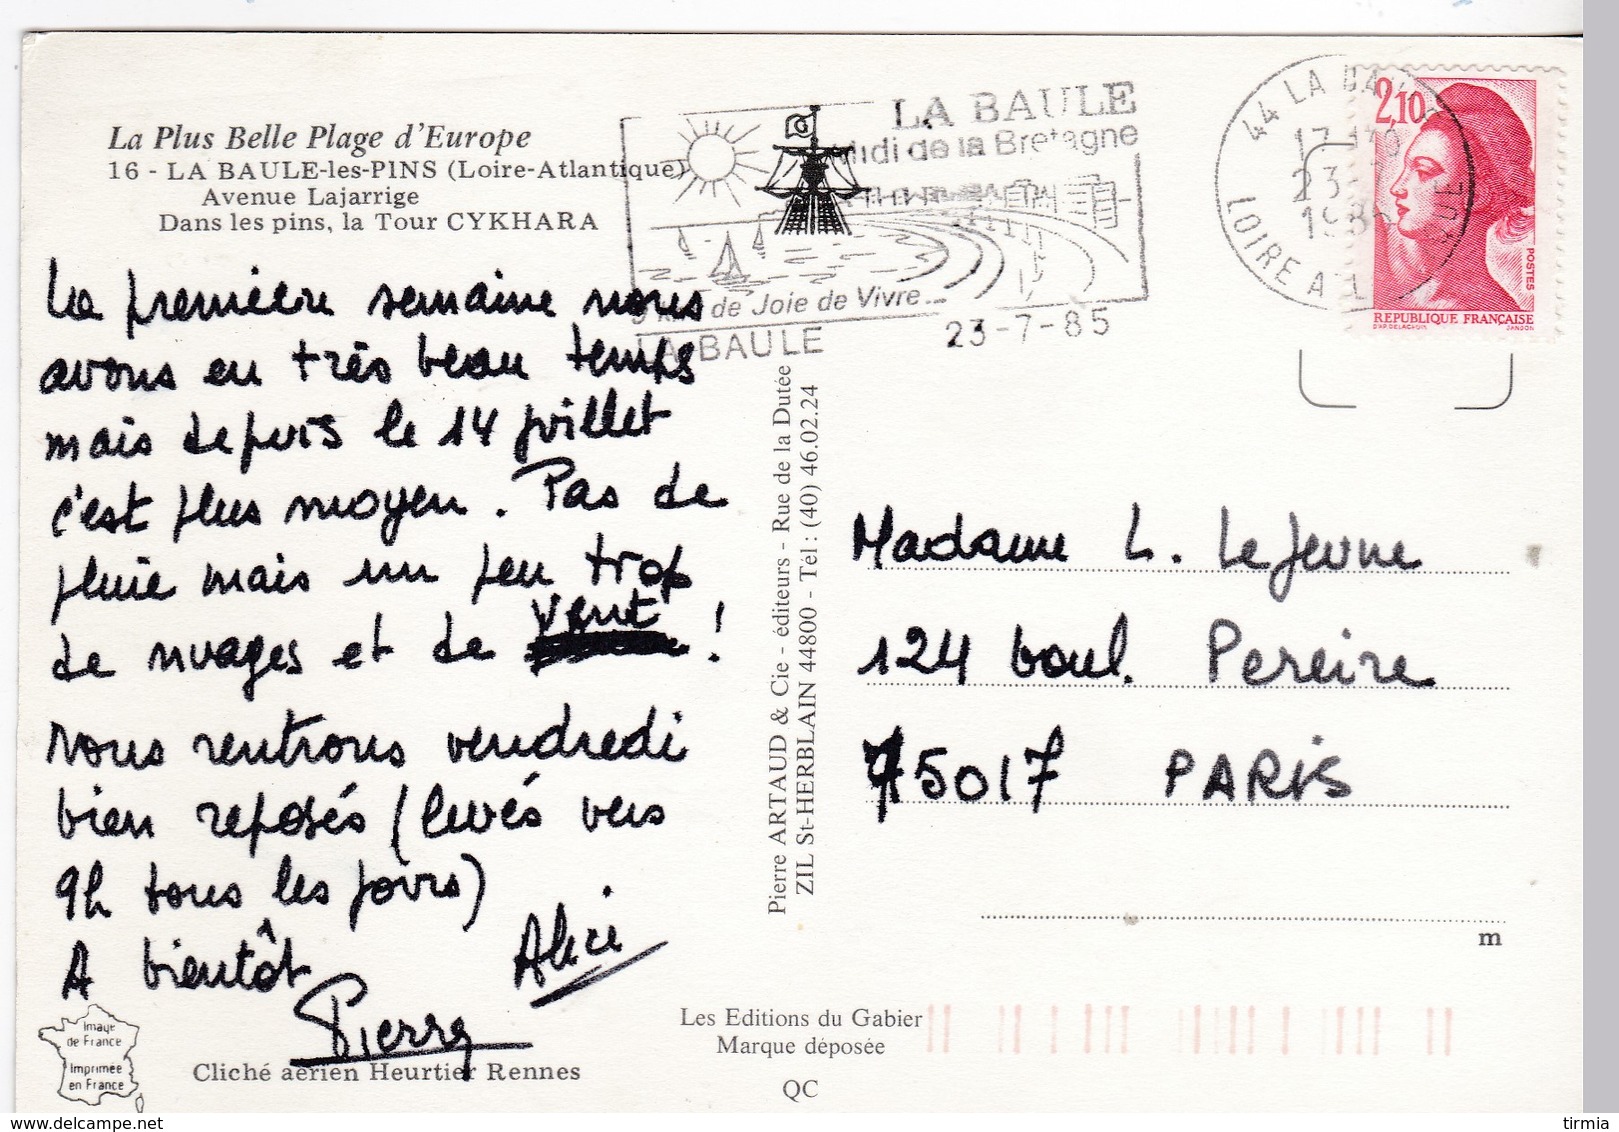 La Plus Belle Plage d'Europe
16 - LA BAULE-les-PINS (Loire-Atlantique)
Avenue Lajarrige
Dans les pins, la Tour CYKHARA
La première semaine nous
avons eu très beau temps
mais depuis le 14 juillet
c'est plus moyen. Pas de
pluie mais un peu trop
de nuages et de vent !
Nous rentrons vendredi
bien reposés (levés vers
9h tous les jours)
A bientôt
Alice
Pierre
Image
de France
Imprimée
en France
Cliché aérien Heurtier Rennes
LA BAULE
Midi de la Bretagne
de Joie de Vivre
LA BAULE
23-7-85
44 LA BAULE
23-7
LOIRE ATL
2,10
POSTES
REPUBLIQUE FRANÇAISE
D'AP. DELACROIX GANDON
Pierre ARTAUD & Cie - éditeurs - Rue de la Dutée
ZIL St-HERBLAIN 44800 - Tél : (40) 46.02.24
Madame L. Lejeune
124 boul. Pereire
75017 PARIS
m
Les Editions du Gabier
Marque déposée
QC
www.delcampe.net
tirmia